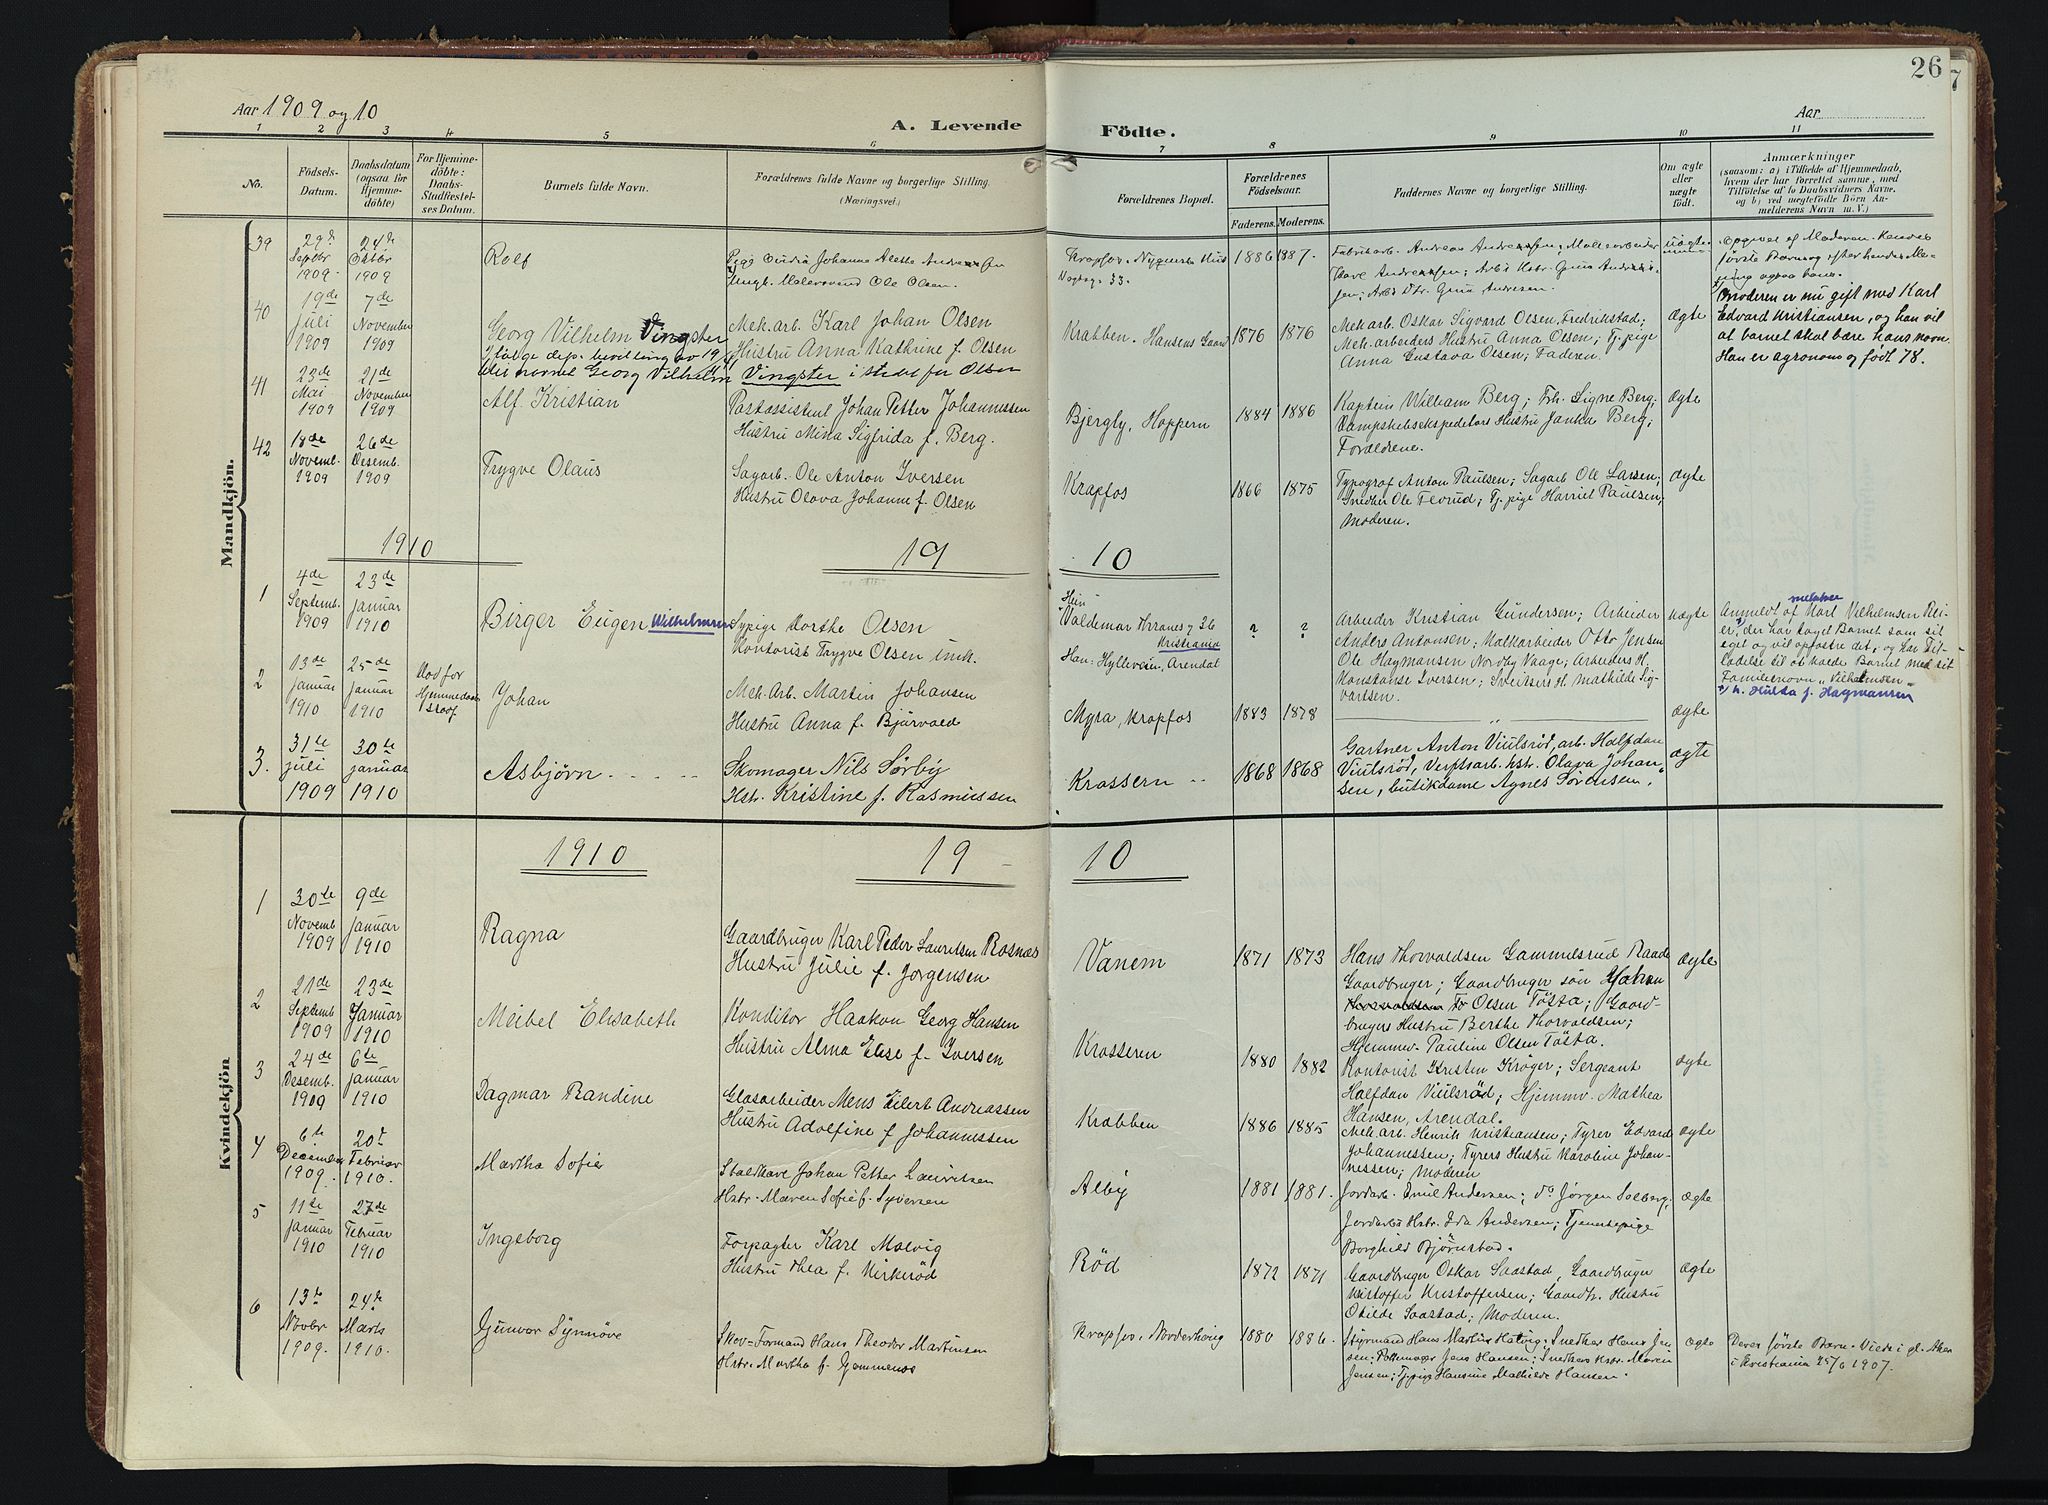 26
7
Aar 1909 og 10
A. Levende
Födte.
Aar
1 2 3 4 5 6 7 8 9 10 11
No.
Födsels-Datum.
Daabsdatum (ogsaa for Hjemme-döbte)
For Hjemme-döbte: Daabs-Stadfæstel-ses Datum.
Barnets fulde Navn.
Forældrenes fulde Navne og borgerlige Stilling.
(Næringsvei.)
Forældrenes Bopæl.
Forældrenes Födselsaar.
Faderens. Moderens.
Faddernes Navne og borgerlige Stilling.
Om ægte eller uægte födt.
Anmærkninger
(saasom: a) i Tilfælde af Hjemmedaab,
hvem der har forrettet samme, med
Tilföielse af to Daabsvidners Navne,
og b) ved uægtefödte Börn An-
melderens Navn m. V.)
Mandkjön.
39 29de Septbr 1909. 24de Oktbr 1909
Rolf
Johanne Alette
Ungk. Malersvend Ole Olsen.
Krapfos. Nygaards Hus
1886 1887.
Fabrikarb. Andreas
uægte
Opgivet af Moderen. Hendes
første Barn
40 19de Juli 1909 7de November 1909
Georg Vilhelm Vingster
Mek. arb. Karl Johan Olsen
Hustru Anna Kathrine f. Olsen
Krabben. Hansens Gaard
1876 1876
Mek. arb. Oskar Sigvard Olsen, Fredrikstad;
Mek. arbeiders Hustru Anna Olsen; Tj. pige
Anna Gustava Olsen; Faderen.
ægte
Moderen er nu gift med Karl
Edvard Kristiansen, og han vil
at barnet skal bære hans navn.
Han er agronom og født 78.
Ifølge dep. bevilling av
navnet Georg Vilhelm Vingster i stedet for Olsen
41 23de Mai 1909 21de November 1909
Alf Kristian
Postassistent Johan Petter Johannessen
Hustru Mina Sigfrida f. Berg.
Bjergly, Hoppern
1884 1886
Kaptein William Berg; Frk. Signe Berg;
Dampskibsekspeditørs Hustru Janka Berg;
Forældrene.
ægte
42 18de Novemb. 1909 26de Desemb. 1909
Trygve Olaus
Sagarb. Ole Anton Iversen
Hustru Olava Johanne f. Olsen
Krapfos
1866 1875
Typograf Anton Paulsen; Sagarb Ole Larsen;
Snedker Ole Flerud; Tj. pige Harriet Paulsen;
Moderen.
ægte
1910
19
10
1 4de Septemb. 1909 23de Januar 1910
Birger Eugen Wilhelmsen
Sypige Dorthe Olsen
Kontorist Trygve Olsen
Hun:
Valdemar Thranes g 26
Kristiania
Han: Hylleveien, Arendal
? ?
Arbeider Kristian Gundersen; Arbeider
Anders Antonsen; Malkarbeider Otto Jensen
Ole Hagmansen Nordby Vaage; Arbeiders H.
Konstanse Iversen; Sveitsers H. Mathilde Sig-
vartsen.
uægte
Anmeldt af Karl Vilhelmsen
der har taget Barnet som sit
eget og vil opfostre det, og har Til-
ladelse til at kalde Barnet med sit
Familienavn „Vilhelmsen“
h. Hulda f. Hagmansen
2 13de Januar 1910 25de Januar 1910
Død før Hjemmedaab
Johan
Mek. Arb. Martin Johansen
Hustru Anna f. Bjørvald
Myra, Krapfos
1883 1878
"
ægte
3. 31te juli 1909 30te januar 1910
Asbjörn
Skomager Nils Sørby
Hstr. Kristine f. Rasmussen
Krossern
1868 1868
Gartner Anton Viulsröd, arb. Halfdan
Viulsröd, Verftsarb. hstr. Olava Johan-
sen, butikdame Agnes Sørensen.
ægte
Kvindekjön
1910
19
10
1 30te Novemb 1909 9de Januar 1910
Ragna
Gaardbruger Karl Peder Lauritsen Rosnæs
Hustru Julie f. Jørgensen
Vanem
1871 1873
Hans Thorvaldsen Gammelsrud Raade
Gaardbruger; Gaardbruger søn Johan
Olsen Tösta; Gaard-
brugers Hustru Berthe Thorvaldsen;
Hjemmv. Pauline Olsen Tösta.
ægte
2 21de Septemb 1909 23de Januar 1910
Meibel Elisabeth
Konditor Haakon Georg Hansen
Hustru Alma Elise f. Iversen
Krosseren
1880 1882
Kontorist Kristen Krøger; Sergeant
Halfdan Viulsröd; Hjemmv. Mathea
Hansen, Arendal.
ægte
3 24de Desemb. 1909 6te Januar 1910
Dagmar Randine
Glasarbeider Mens Eilert Andreassen
Hustru Adolfine f Johannessen
Krabben
1886 1885
Mek. arb. Henrik Kristiansen; Tyrer Edvard
Johannessen; Tyrers Hustru Karoline Johan-
nessen; Moderen
ægte
4 6te December 1909. 20de Februar 1910.
Martha Sofie
Johan Petter Lauritsen
Hstr. Maren Sofie f. Syversen
Alby
1881 1881.
Jordarb. Emil Andersen; do Jørgen Solberg;
Jordarbs Hstr. Ida Andersen; Tjenestepige
Borghild Bjørnstad.
ægte
5 11te Januar 1910 27de Februar 1910
Ingeborg
Forpagter Karl Malvig
Hustru Thea f. Kirkeröd
Röd
1872 1871
Gaardbruger Oskar Saastad, Gaardbruger
Kristoffer Kristoffersen; Gaardb. Hustru
Otilde Saastad; Moderen.
ægte
6 13de Novbr 1909. 24de Marts 1910.
Gunvor Synnöve
Skov-Formand Hans Theodor Martinsen
Hstr. Martha f.
Krapfos. Norderhaug
1880 1886.
Styrmand Hans Martin Snedker Hans Jen-
sen; Pottemager Jens Hansen; Snedkers Hstr. Maren
Jensen; Tj. pige Hansine Mathilde Hansen.
ægte
Deres første Barn. Viede i gl. Aker
i Kristiania 25/6 1907.